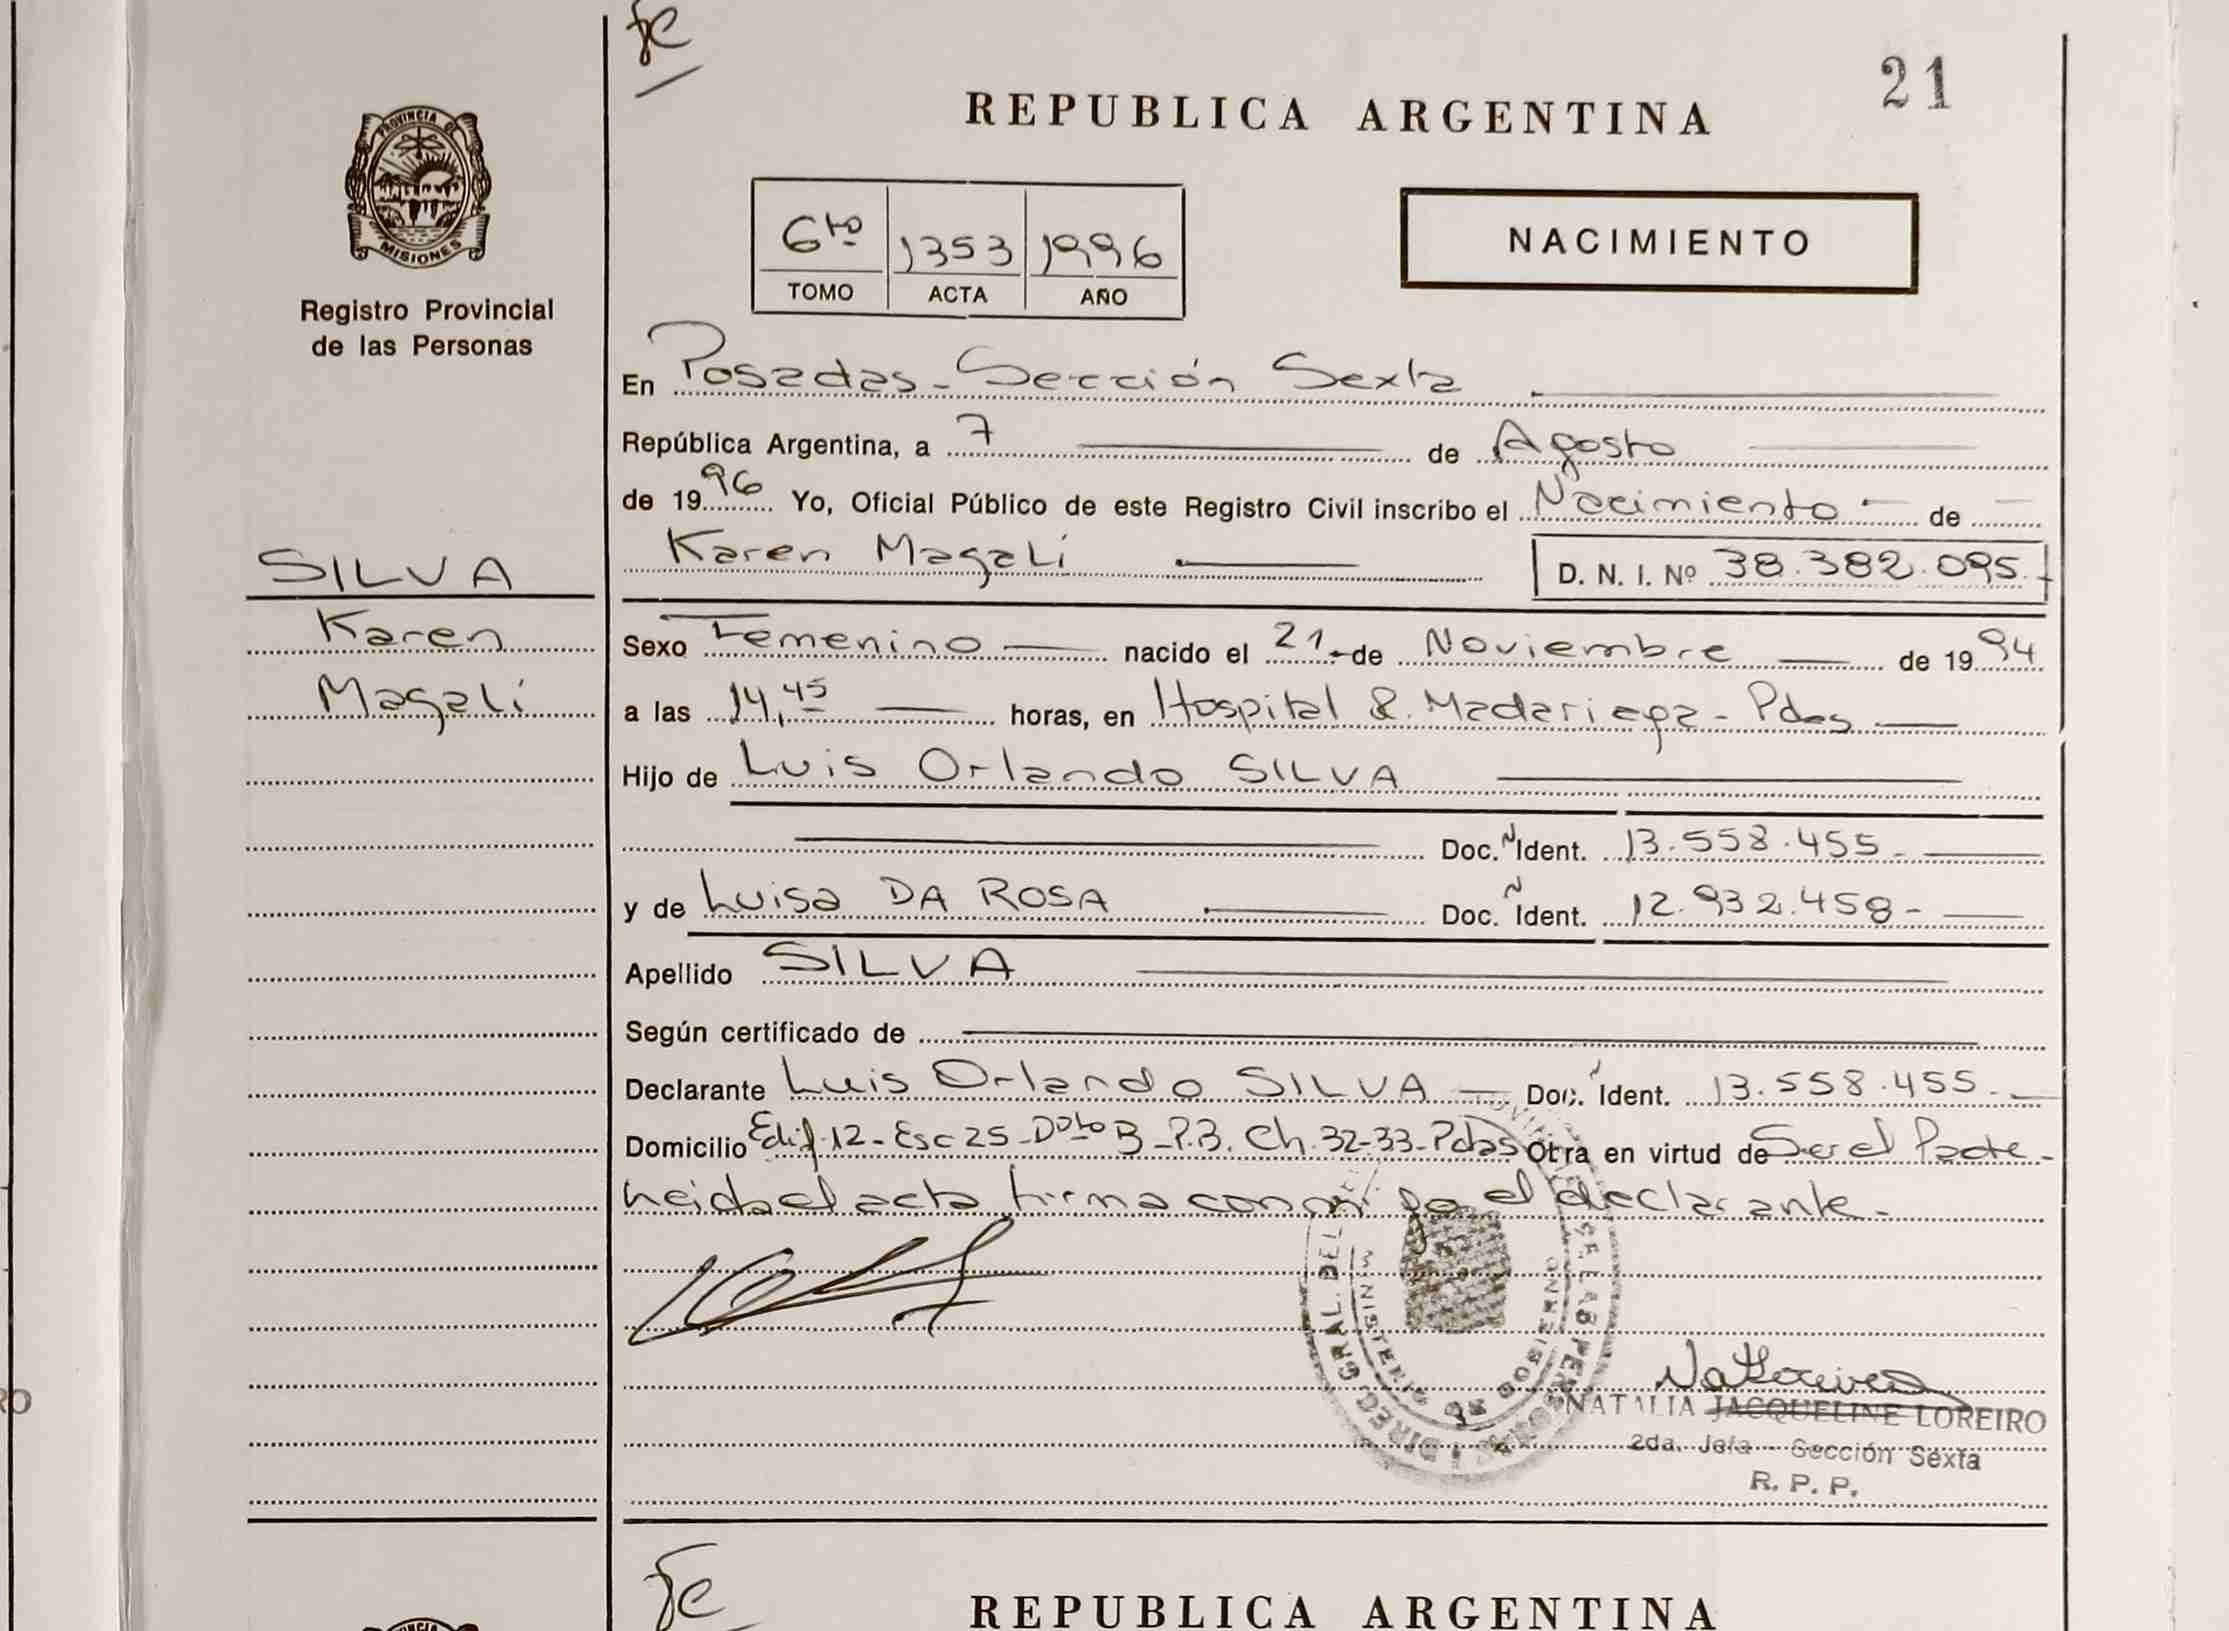 fe
21
REPUBLICA ARGENTINA
PROVINCIA DE
MISIONES
Registro Provincial
de las Personas
6to 1353 1996
TOMO ACTA AÑO
NACIMIENTO
En Posadas - Sección Sexta
República Argentina, a 7 de Agosto
de 1996 Yo, Oficial Público de este Registro Civil inscribo el Nacimiento de
Karen Magalí D. N. I. Nº 38.382.095.-
SILVA
Karen
Magalí
Sexo Femenino nacido el 21 de Noviembre de 1994
a las 14,45 horas, en Hospital R. Madariaga - Pdas
Hijo de Luis Orlando SILVA
Doc. N Ident. 13.558.455 -
y de Luisa DA ROSA Doc. N Ident. 12.932.458 -
Apellido SILVA
Según certificado de
Declarante Luis Orlando SILVA Doc. Ident. 13.558.455.-
Domicilio Edif. 12 - Esc 25 - Dpto B - P.B. Ch. 32-33 - Pdas Otra en virtud de Ser el Padre -
Leida el acta firma conmigo el declarante.-
DIREC. GRAL. DEL DE LAS PERSONAS
MINISTERIO DE GOBIERNO
NATALIA JACQUELINE LOREIRO
2da. Jefa Sección Sexta
R. P. P.
fe
REPUBLICA ARGENTINA